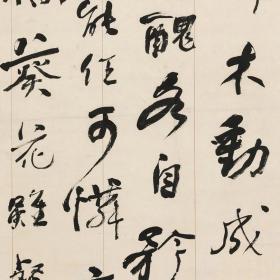 木動成
醜各自矜
能任可憐
葵花雖粲